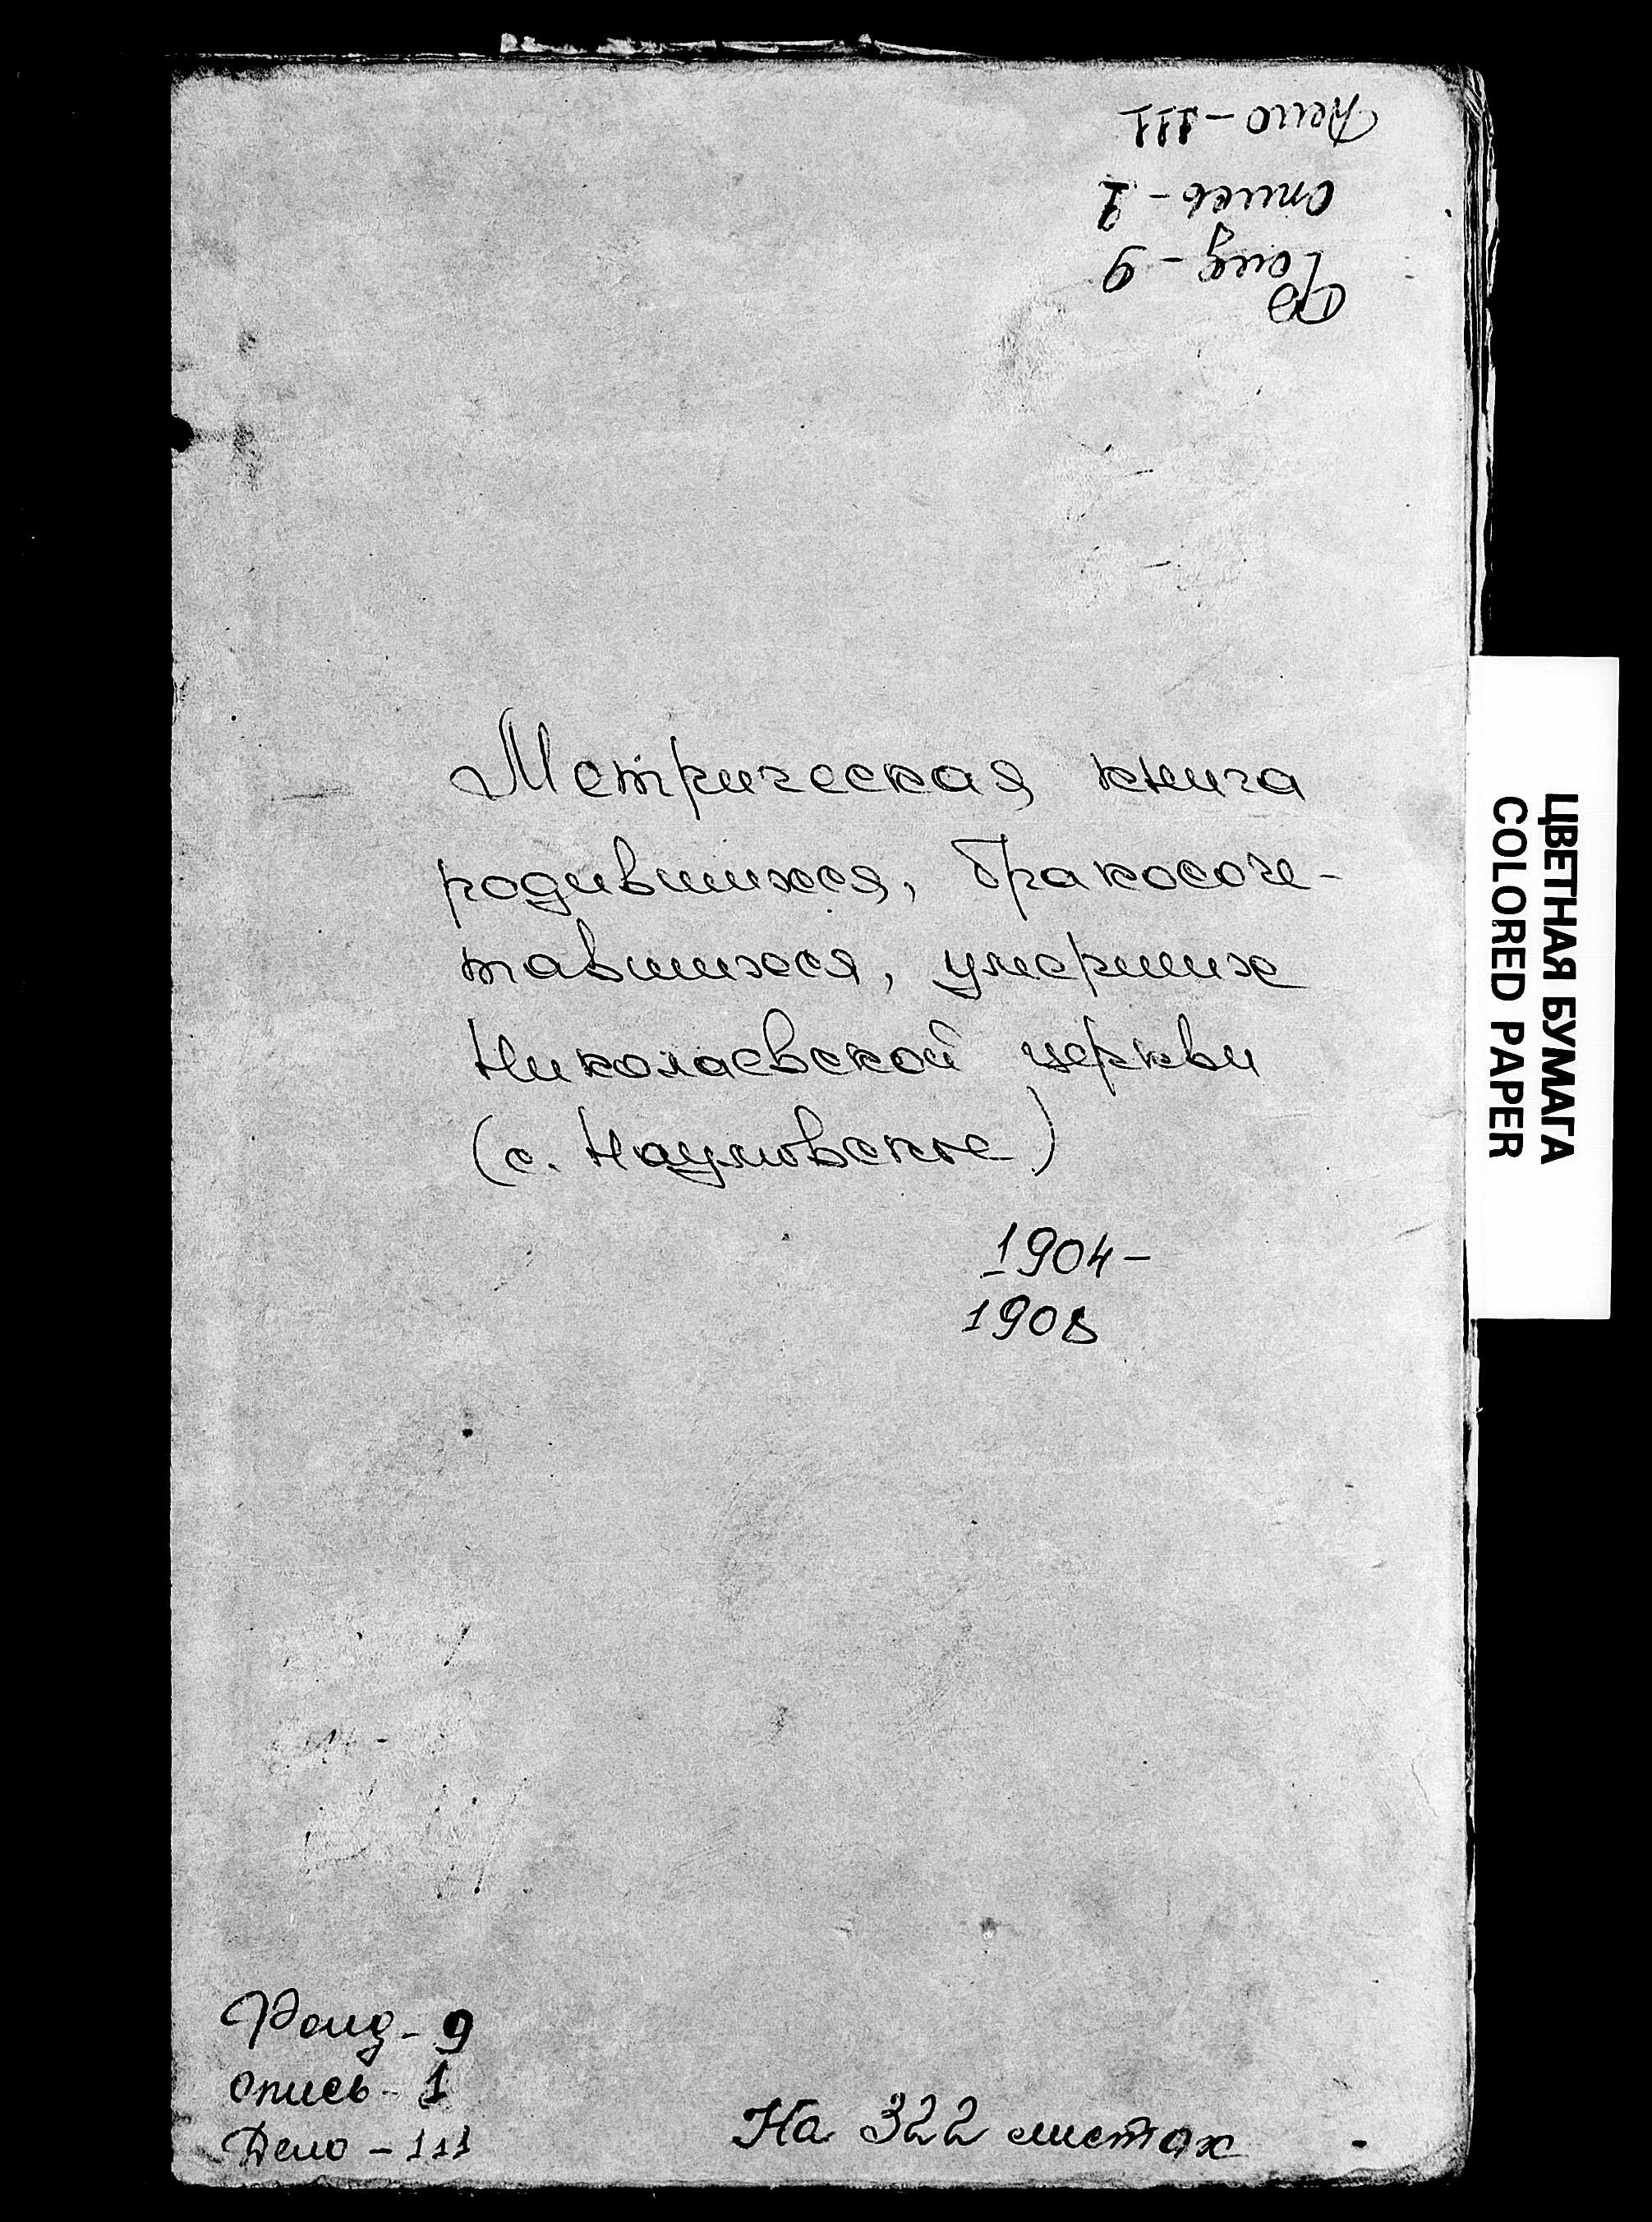 Дело - 111
опись - 1
Фонд - 9
Метрическая книга
родившихся, бракосоче-
тавшихся, умерших
Николаевской церкви
(с. Наумовское)
1904-
1908
ЦВЕТНАЯ БУМАГА
COLORED PAPER
Фонд - 9
опись - 1
Дело - 111
На 322 листах